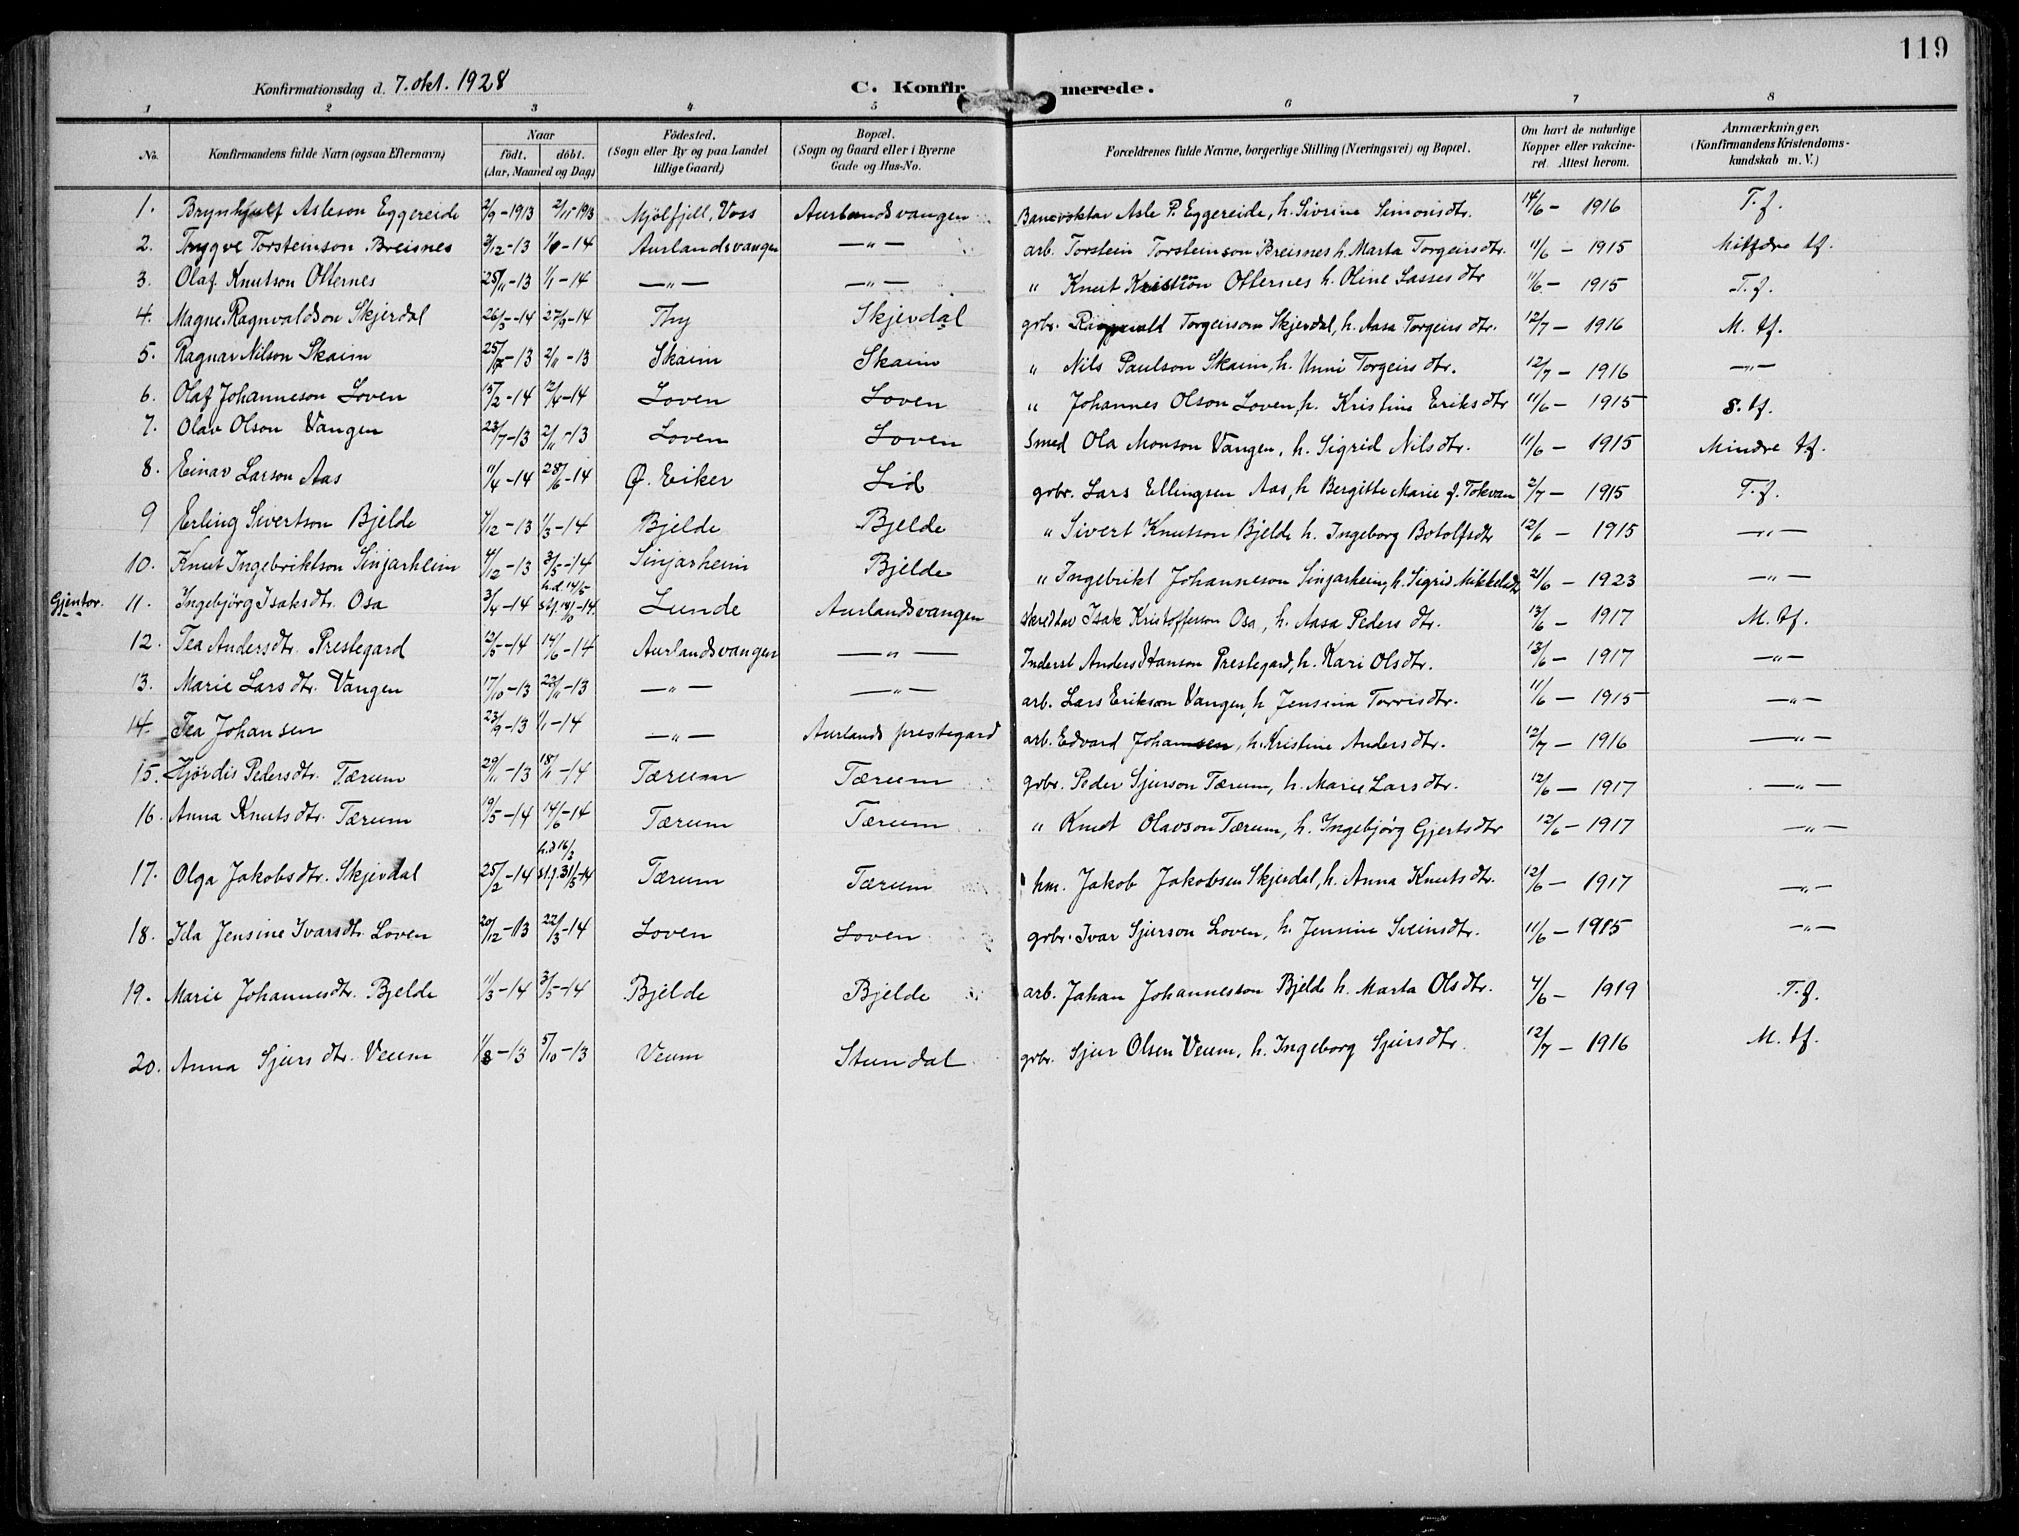 119
Konfirmationsdag d. 7. okt. 1928 C. Konfirmerede.
1 2 3 4 5 6 7 8
No. Konfirmandens fulde Navn (ogsaa Efternavn) Naar födt. döbt. (Aar, Maaned og Dag) Födested. (Sogn eller By og paa Landet tillige Gaard) Bopæl. (Sogn og Gaard eller i Byerne Gade og Hus-No. Forældrenes fulde Navne, borgerlige Stilling (Næringsvei) og Bopæl. Om havt de naturlige Kopper eller vaccineret. Attest herom. Anmærkninger. (Konfirmandens Kristendomskundskab m. V.)
1. Brynhjulf Asleson Eggereide 2/9-1913 2/11-1913 Mjölfjell, Voss Aurlandsvangen Banevoktar Asle P. Eggereide, h. Sivrine Simonsdtr. 14/6 - 1916 T.f.
2. Trygve Torsteinson Breisnes 3/12-13 -14 Aurlandsvangen —"— arb. Torstein Torsteinson Breisnes h. Marta Torgeirsdtr. 11/6 - 1915 tf.
3. Olaf Knutson Otternes 25/11-13 1/1-14 —"— —"— " Knut Otternes h. Oline Lassesdtr 11/6 - 1915 T.f.
4. Magne Ragnvaldson Skjerdal 26/5-14 27/9-14 Thy Skjerdal grbr. Ragnvald Torgeirson Skjerdal, h. Aasa Torgeirsdtr. 12/7 - 1916 M. tf.
5. Ragnar Nilson Skaim 25/7-13 2/11-13 Skaim Skaim " Nils Paulson Skaim, h. Unni Torgeirsdtr. 12/7 - 1916 —"—
6. Olaf Johanneson Loven 15/2-14 12/4-14 Loven Loven " Johannes Olson Loven, h. Kristine Eriksdtr 11/6 - 1915 S. tf.
7. Olav Olson Vangen 23/7-13 2/11-13 Loven Loven Smed Ola Monson Vangen, h. Sigrid Nilsdtr. 11/6 - 1915 Mindre tf.
8. Einar Larson Aas 11/4-14 28/6-14 Ø. Eiker Lid grbr. Lars Ellingsen Aas, h Bergitte Marie f. Tokvam 2/7 - 1915 T.f.
9 Erling Sivertson Bjelde /12-13 1/3-14 Bjelde Bjelde " Sivert Knutson Bjelde h. Ingeborg Botolfsdtr 12/6 - 1915 —"—
10. Knut Ingebriktson Sinjarheim 4/12-13 3/5-14 Sinjarheim Bjelde " Ingebrikt Johanneson Sinjarheim, h. Sigrid Mikkelsdtr 21/6 - 1923 —"—
Gjentor. 11. Ingebjörg Isaksdtr. Osa 3/4-14 h.d. 14/5 -14. Lunde Aurlandsvangen Skreddar Isak Kristofferson Osa, h. Aasa Pedersdtr. 13/6 - 1917 M. tf.
12. Tea Andersdtr. Prestegard 12/5-14 14/6-14 Aurlandsvangen —"— Inderst Anders Hanson Prestegard, h. Kari Olsdtr. 13/6 - 1917 —"—
13. Marie Larsdtr. Vangen 17/10-13 23/11-13 —"— —"— arb. Lars Erikson Vangen, h Jensina Torrisdtr. 11/6 - 1915 —"—
14. Tea Johansen 23/9-13 1/1-14 —"— Aurlands prestegard arb. Edvard Johansen, h. Kristine Andersdtr. 12/7 - 1916 —"—
15. Hjördis Pedersdtr. Tærum 29/11-13 18/1-14 Tærum Tærum grbr. Peder Sjurson Tærum, h. Marie Larsdtr. 12/6 - 1917 —"—
16. Anna Knutsdtr. Tærum 19/5-14 14/6-14 Tærum Tærum " Knut Olavson Tærum, h. Ingebjörg Gjertsdtr 12/6 - 1917 —"—
17. Olga Jakobsdtr. Skjerdal 25/2-14 h.d 16/3 st.f. 31/5-14 Tærum Tærum hm. Jakob Jakobsen Skjerdal, h. Anna Knutsdtr. 12/6 - 1917 —"—
18. Ida Jensine Ivarsdtr. Loven 20/12-13 22/3-14 Loven Loven grbr. Ivar Sjurson Loven, h. Jensine Sveinsdtr. 11/6 - 1915 —"—
19. Marie Johannesdtr. Bjelde 11/3-14 3/5-14 Bjelde Bjelde arb. Johan Johannesson Bjelde h. Marta Olsdtr. 4/6 - 1919 T.f.
20. Anna Sjursdtr. Veum 1/8-13 5/10-13 Veum Stundal grbr. Sjur Olsen Veum, h. Ingeborg Sjursdtr. 12/7 - 1916 M. tf.